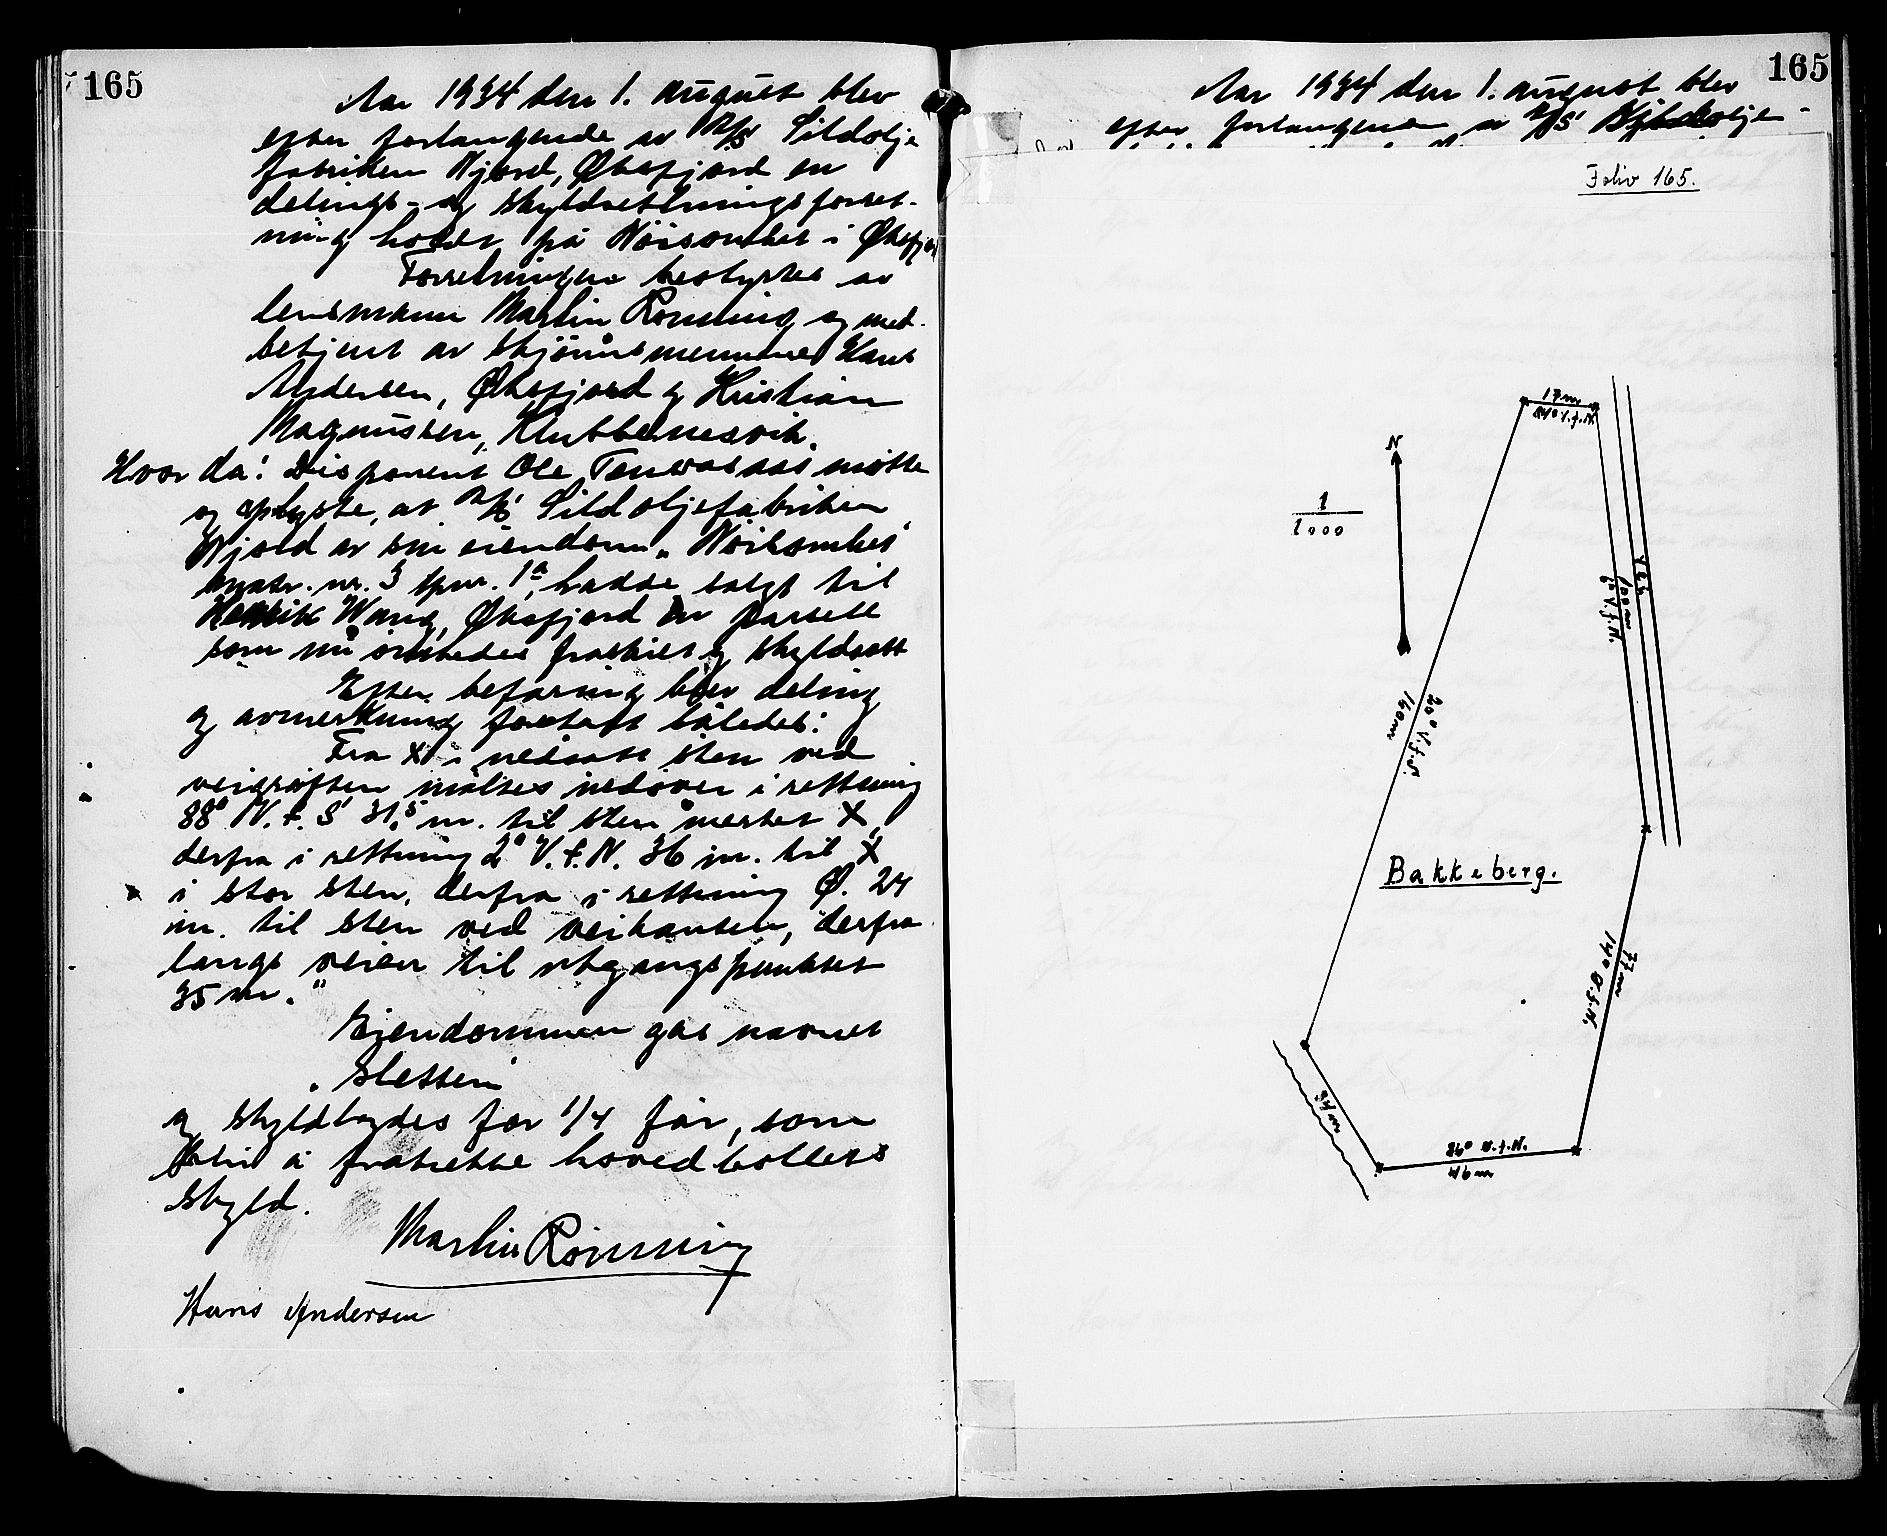 165
Aar 1934 den 1. august blev
efter forlangende av A/S Sildolje
fabriken Njord, Øksfjord en
delings- og skyldsetningsforret-
ning holdt på Nöisomhet i Øksfjord
Forretningen bestyrtes av
lensmann Martin Rönning og med-
betjent av skjönnsmennene Hans
Andersen, Øksfjord og Kristian
Magnussen, Klubbenesvik.
Hvor da: Disponent Ole mötte
og oplyste, at A/S Sildoljefabriken
Njord av sin eiendom „Nöisomhet"
matr. nr. 3 lpnr. 1a, hadde solgt til
Henrik Wang, Øksfjord en parsell
som nu önskedes fraskilt og skyldsatt
Efter befaring blev deling
og avmerkning foretatt således:
Fra X i nedsatt sten ved
veigröften måltes nedover i rettning
88° V.f.S 31,5 m. til sten merket X,
derfra i rettning 2° V.f.N. 36 m. til X
i stor sten, derfra i rettning Ø. 24
m. til sten ved veikanten, derfra
langs veien til utgangspunktet
35 m."
Eiendommen gas navnet
„Sletten"
og skyldbydes for 1/4 før, som
blir å fratrekke hovedböllets
skyld.
Martin Rönning
Hans Andersen
165
Aar 1934 den 1. august blev
efter forlangende av A/S Sildolje-
Folio 165.
17 m
84° V.f.N.
N
1
1000
Vei
100 m
6° V.f.N.
20° V.f.N.
160 m
Bakkeberg.
77 m
14° Ø.f.N.
34 m
86° V.f.N.
46 m